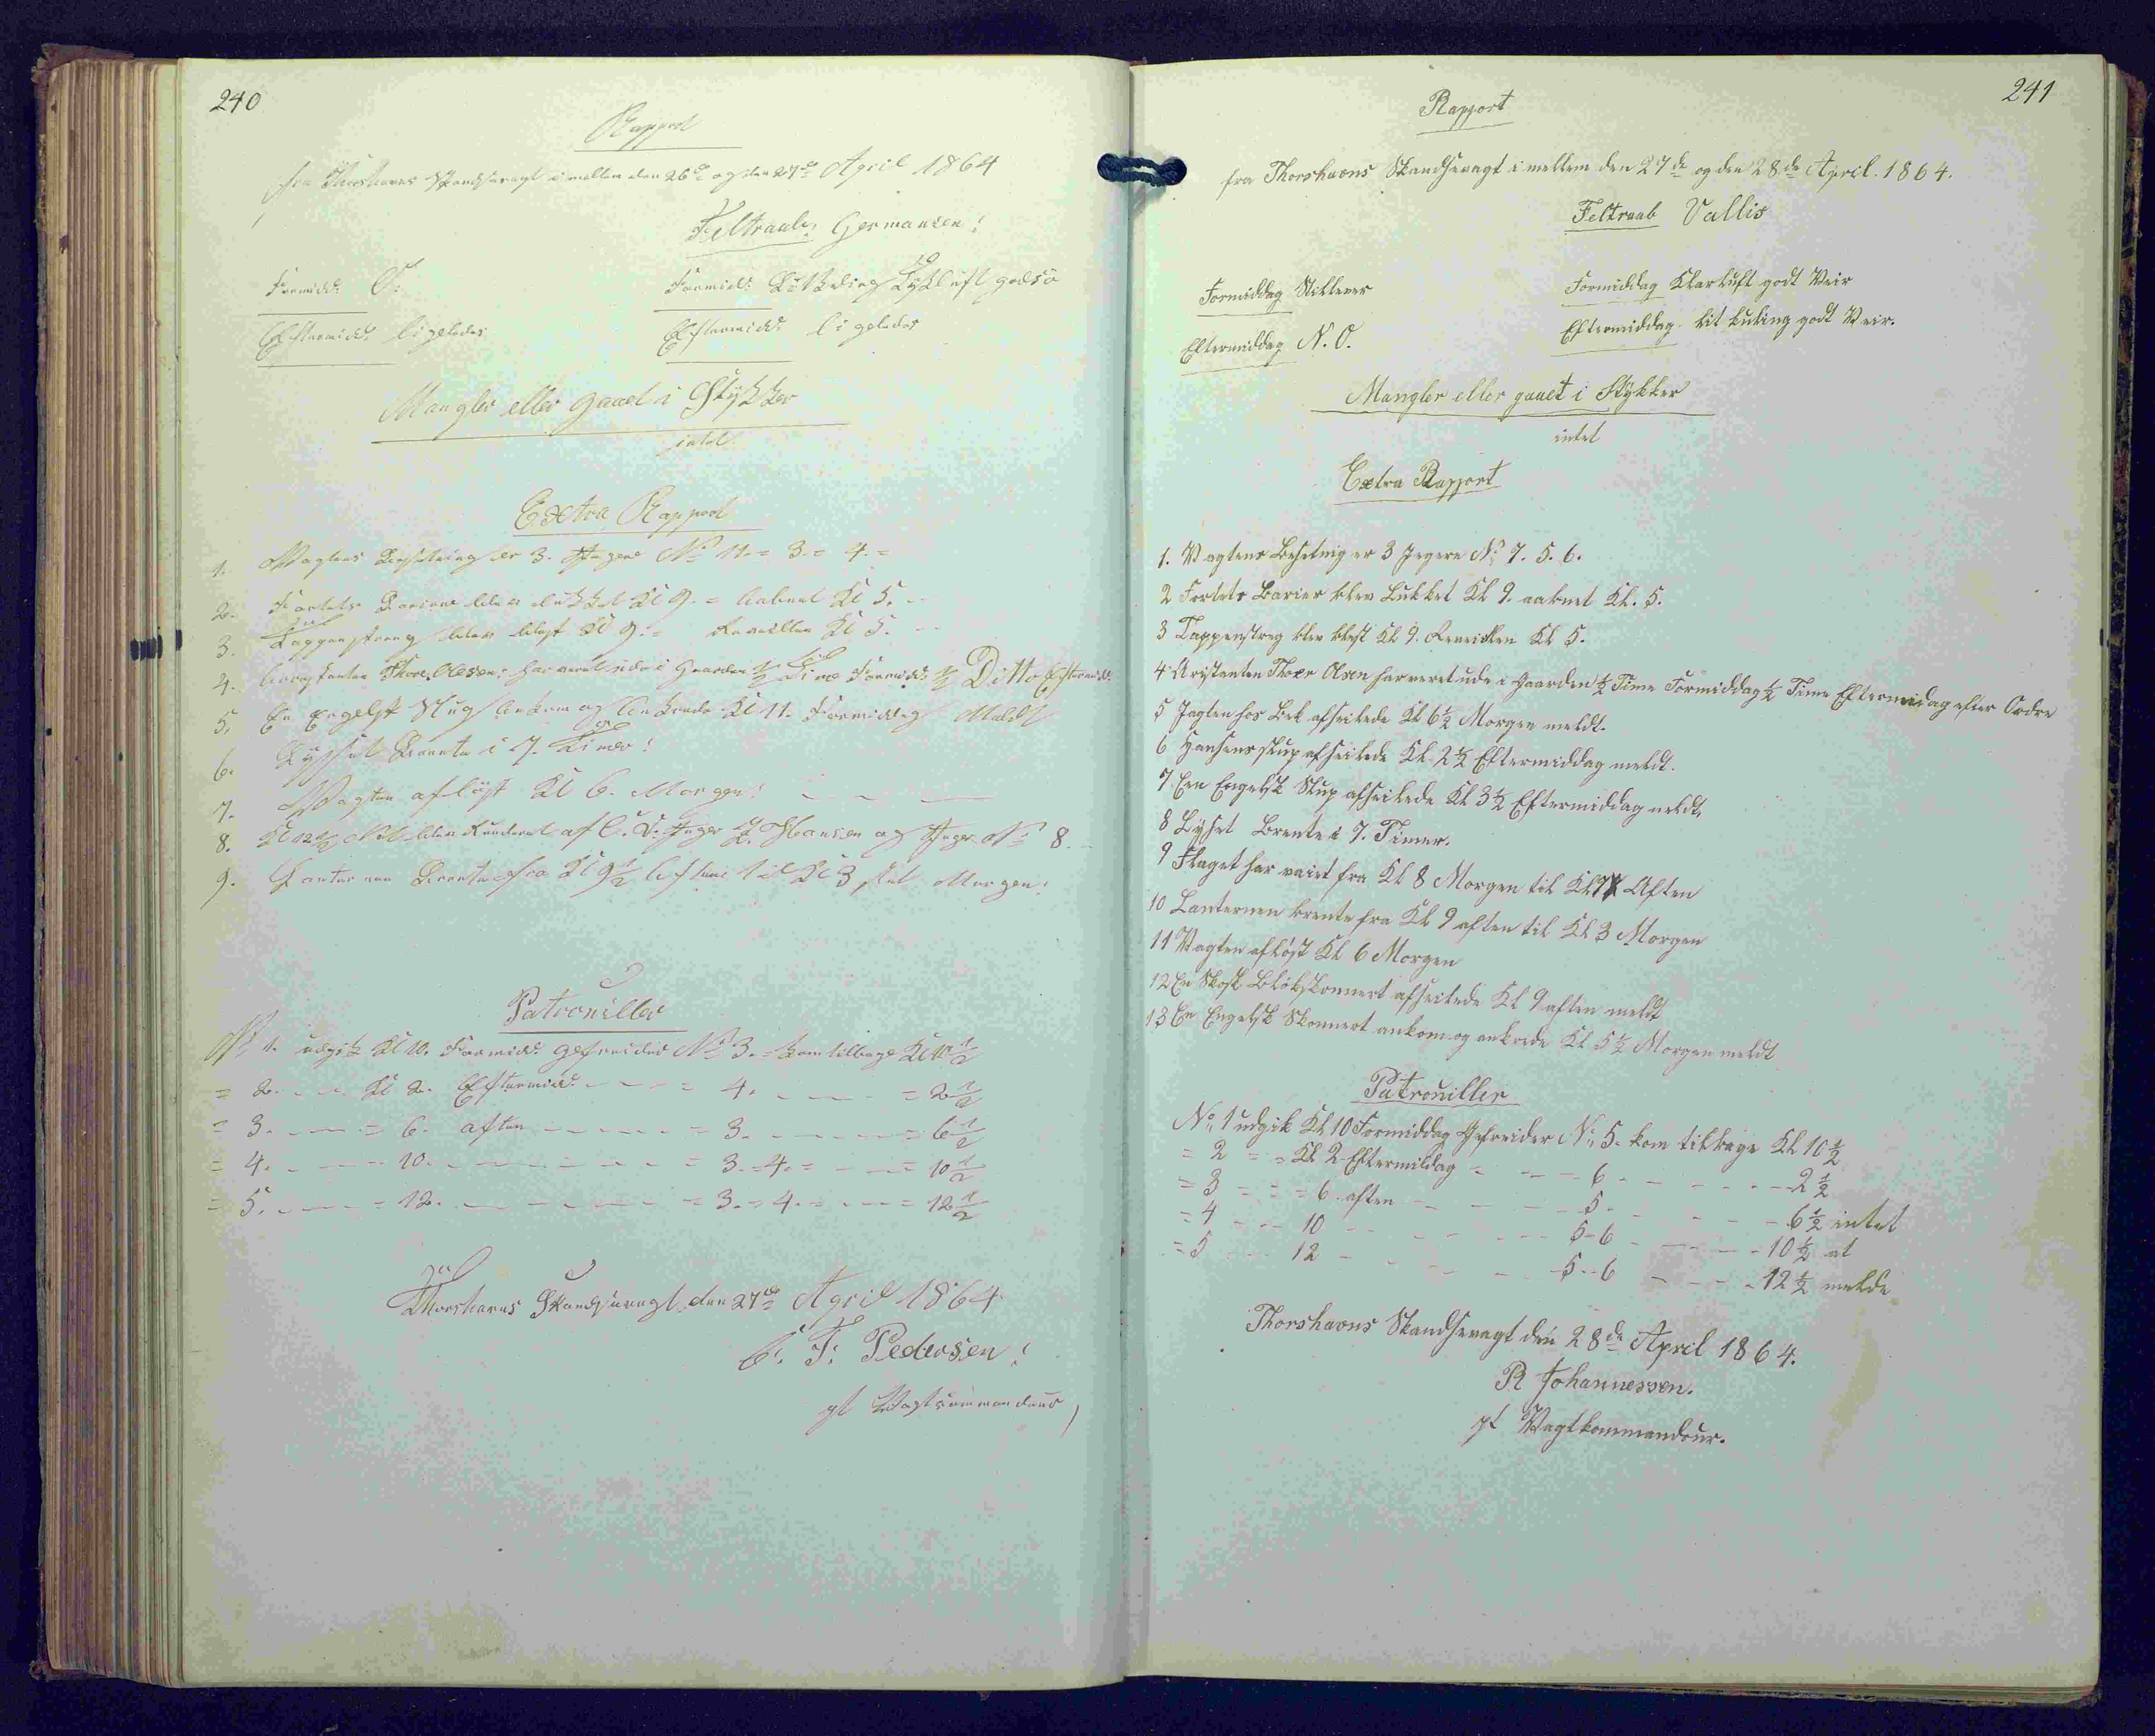 240
Rapport
fra Thorshavns Skandsevagt imellem den 26de og den 27de April 1864
Feltraab: Germanien!
Formidd: O. Formidd: Kuling Tykluft godt
Eftermidd: ligeledes Eftermidd: ligeledes
Mangler eller gaaet i Stykker
intet.
Extra Rapport
1. Vagtens Besetning er 3. Jegere No 11. = 3. = 4. =
2. Fortets Bariere blev lukket Kl 9. = aabnet Kl 5. --
3. Tappenstreg blev blest Kl 9. = Reveillen Kl 5. --
4. Arrestanten Thore Olesen: har veret ude i Gaarden ½ Time Formidd: ½ Ditto Eftermidd:
5. En Engelsk Slup ankom og ankrede Kl 11. Formiddag Meldt
6. Lysset Brente i 7. Timer!
7. Vagten aflöst Kl 6. Morgen!
8. Kl 12½ Nat blev Runderet af Jeger J. Hansen og Jeger No 8. --
9. Lanternen Brente fra Kl 9½ Aften til Kl 3 Morgen!
Patrouiller
No 1. udgik Kl 10. Formidd: Gefreider No 3. = kom tilbage Kl 10½
= 2. - - - Kl 2. Eftermidd: - - - = 4. - - - = 2½
= 3. - - - = 6. aften - - - = 3. - - - = 6½
= 4. - - - 10. - - - = 3. = 4. = - - - = 10½
= 5. - - - = 12. - - - = 3. = 4. = - - - = 12½
Thorshavns Skandsevagt den 27de April 1864
C. F. Pedersen!
gt Vagtcommandeur
241
Rapport
fra Thorshavns Skandsevagt imellem den 27de og den 28de April. 1864.
Feltraab Vallis
Formiddag Stillever Formiddag Klarluft godt Veir
Eftermiddag N. O. Eftermiddag lit kuling godt Veir.
Mangler eller gaaet i Stykker
intet
Extra Rapport
1. Vagtens Besetnig er 3 Jegere No 7. 5. 6.
2 Fortets Barier blev Lukket Kl 9. aabnet Kl. 5.
3 Tappenstreg blev blest Kl 9. Reveillen Kl 5.
4 Aristanten Thoer Olsen har veret ude i Gaarden ½ Time Formiddag ½ Time Eftermidag efter Ordre
5 Jagten hos Bek afseilede Kl 6½ Morgen meldt.
6 Hansens slup afseilede Kl 2½ Eftermiddag meldt.
7 Een Engelsk Slup afseilede Kl 3½ Eftermiddag meldt.
8 Lyset Brente i 7. Timer.
9 Flaget har vaiet fra Kl 8 Morgen til Kl 7½ Aften
10 Lanternen brente fra Kl 9 aften til Kl 3 Morgen
11 Vagten afløst Kl 6 Morgen
12 En Skonnert afseilede Kl 9 aften meldt
13 En Engelsk Skonnert ankom og ankrede Kl 5½ Morgen meldt
Patrouiller
No 1 udgik Kl 10 Formiddag Gefreider No 5. kom tilbage Kl 10½
= 2 = = Kl 2 Eftermiddag - - - 6 - - - 2½
= 3 - - = 6 aften - - - 5 - - - 6½ intet
= 4 - - - 10 - - - 5-6 - - - 10½ at
= 5 - - - 12 - - - 5-6 - - - 12½ melde
Thorshavns Skandsevagt den 28de April 1864.
R Johannessen.
gt Vagtkommandour.